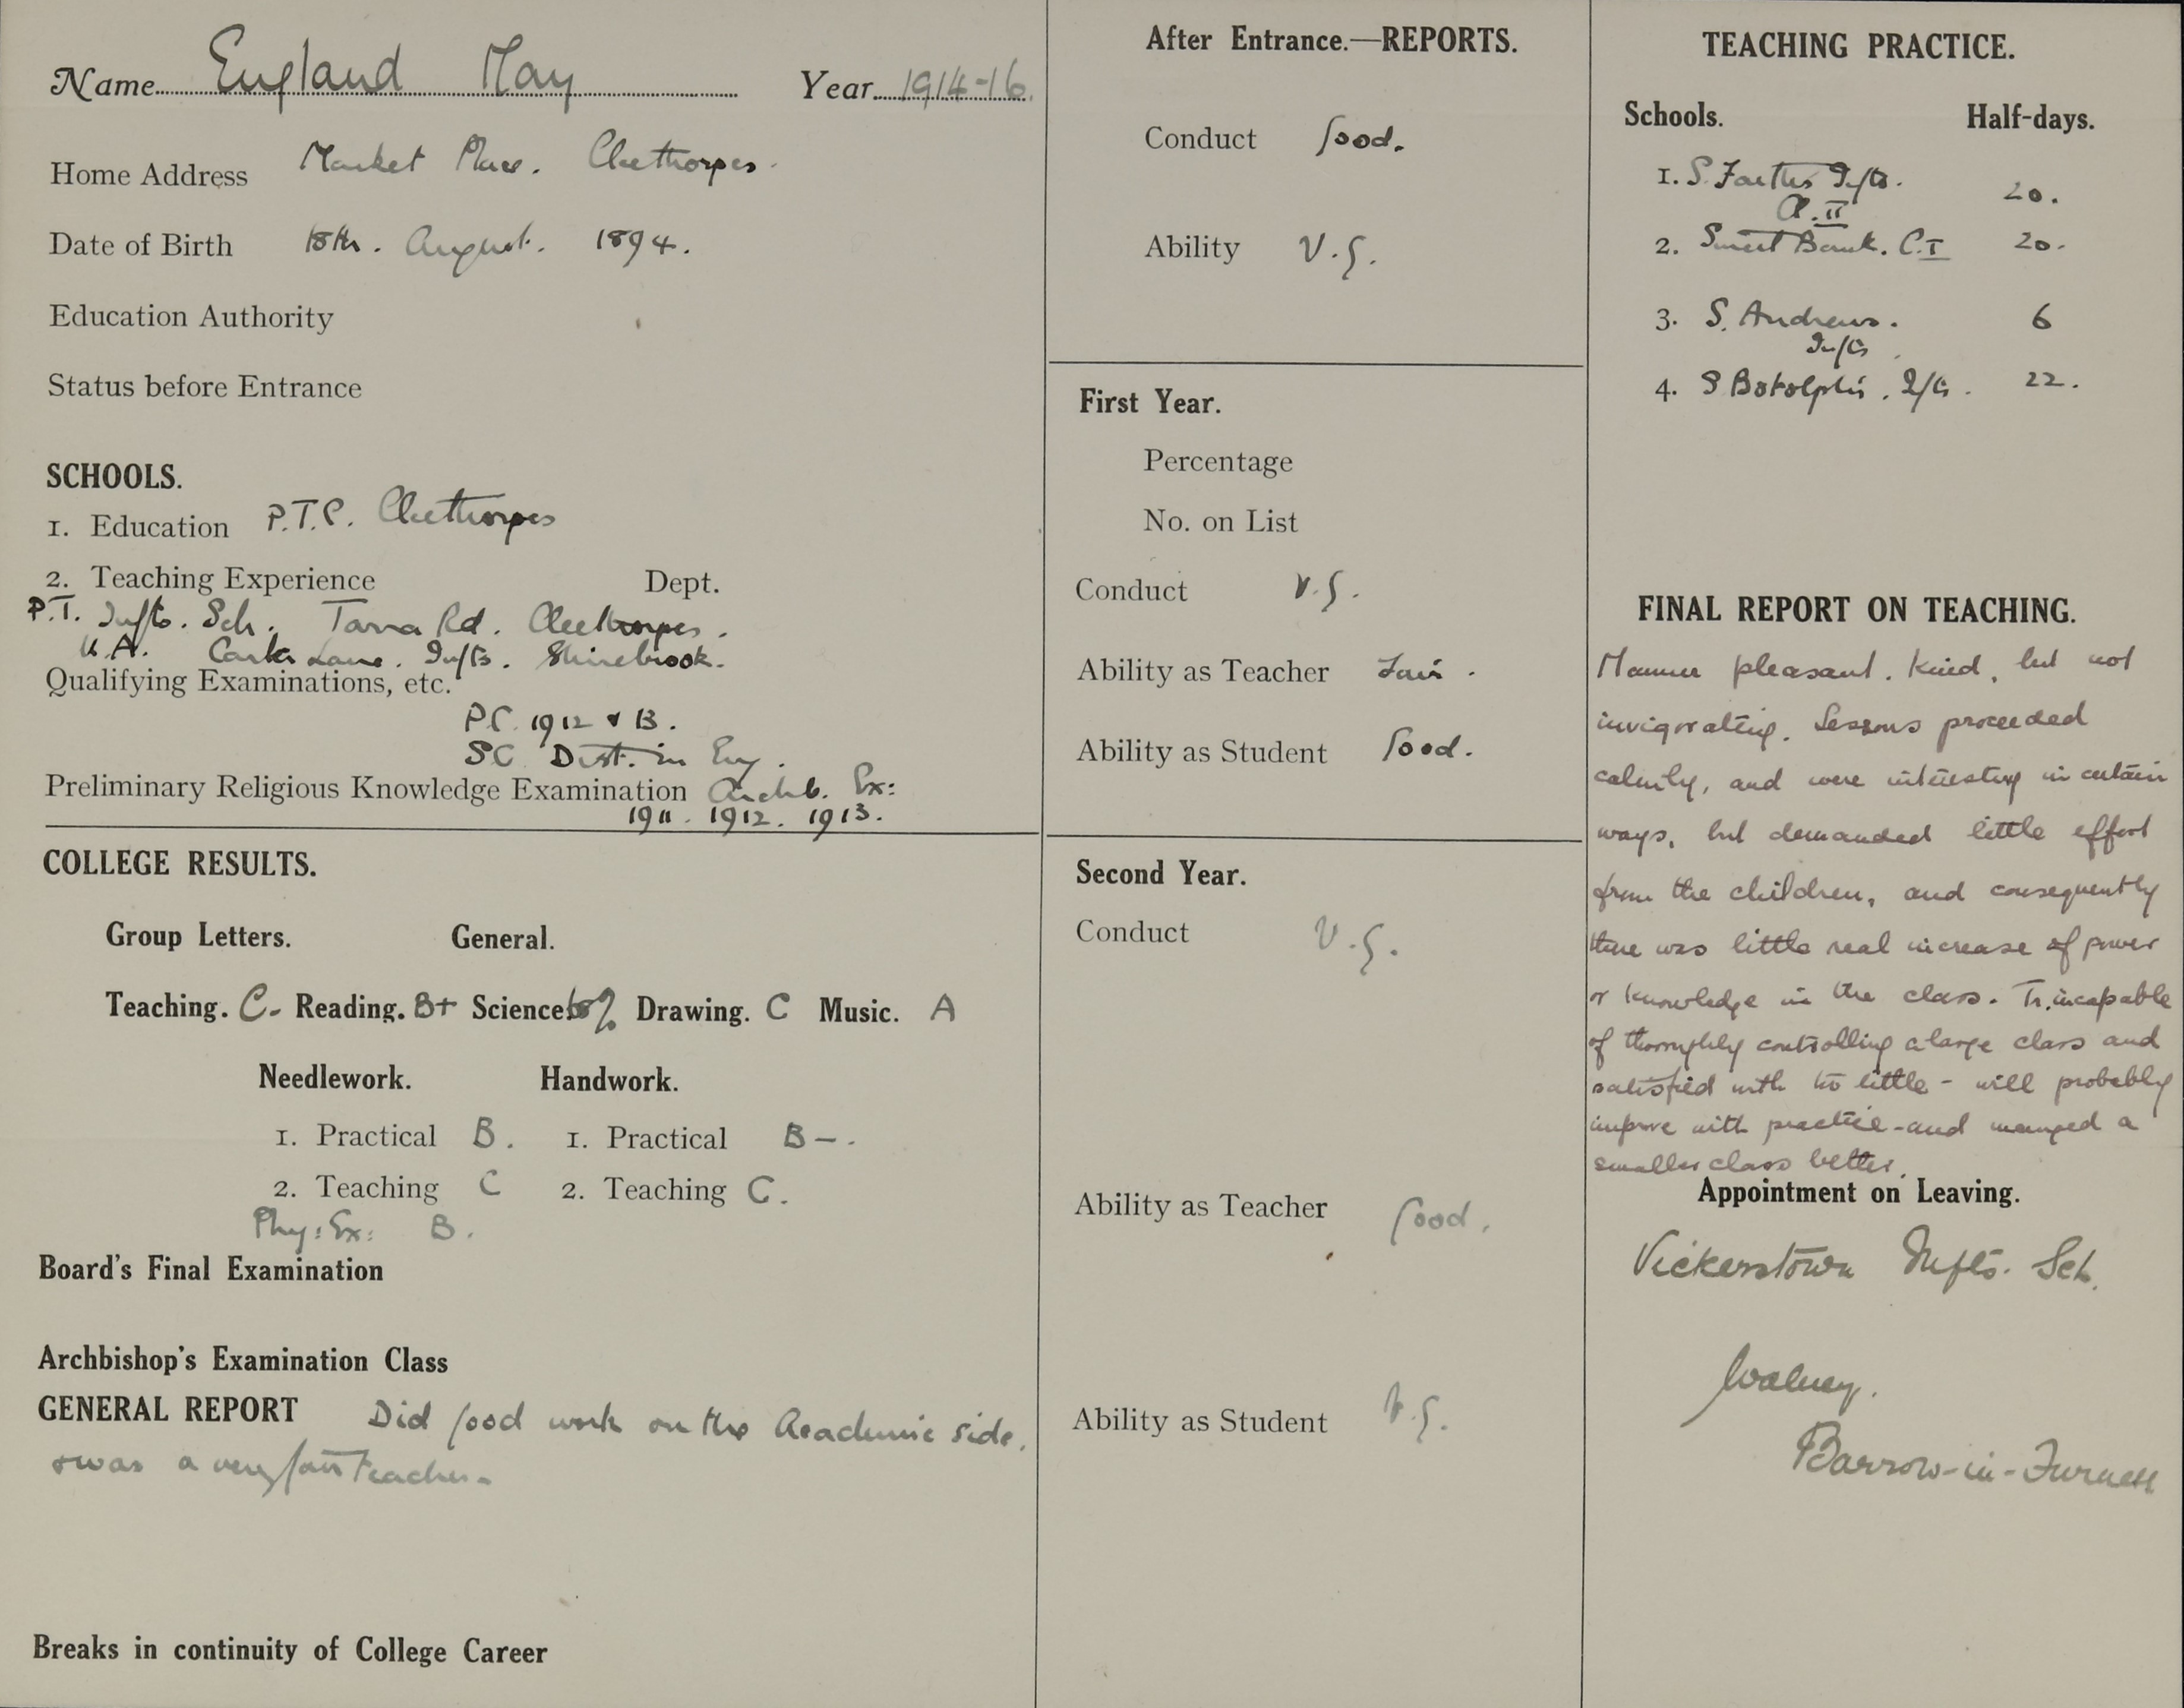 Name England May Year 1914-16.
Home Address Market Place. Cleethorpes.
Date of Birth 18th. August. 1894.
Education Authority
Status before Entrance
SCHOOLS.
1. Education P.T.C. Cleethorpes
2. Teaching Experience Dept.
P.T. Infts. Sch. Rd. Cleethorpes.
U.A. Carter Lane. Infts. Shirebrook.
Qualifying Examinations, etc.
P.C. 1912 & 13.
SC Dist. in Eng.
Preliminary Religious Knowledge Examination Archb. Ex:
1911. 1912. 1913.
COLLEGE RESULTS.
Group Letters. General.
Teaching. C- Reading. B+ Science Drawing. C Music. A
Needlework. Handwork.
1. Practical B. 1. Practical B-.
2. Teaching C 2. Teaching C.
Phy: Ex: B.
Board's Final Examination
Archbishop's Examination Class
GENERAL REPORT Did good work on the Academic side,
& was a very fair teacher.
Breaks in continuity of College Career
After Entrance.—REPORTS.
Conduct Good.
Ability V.G.
First Year.
Percentage
No. on List
Conduct V.G.
Ability as Teacher Fair.
Ability as Student Good.
Second Year.
Conduct V.G.
Ability as Teacher Good.
Ability as Student V.G.
TEACHING PRACTICE.
Schools. Half-days.
1. S. Faiths Infts. 20.
Cl. II
2. Bank. C.I 20.
3. S. Andrews. 6
Infts
4. S Botolph's. Infts. 22.
FINAL REPORT ON TEACHING.
Manner pleasant. Kind, but not
invigorating. Lessons proceeded
calmly, and were interesting in certain
ways, but demanded little effort
from the children, and consequently
there was little real increase of power
or knowledge in the class. Tr. incapable
of thoroughly controlling a large class and
satisfied with too little - will probably
improve with practice - and managed a
smaller class better.
Appointment on Leaving.
Vickerstown Infts. Sch.
Walney.
Barrow-in-Furness